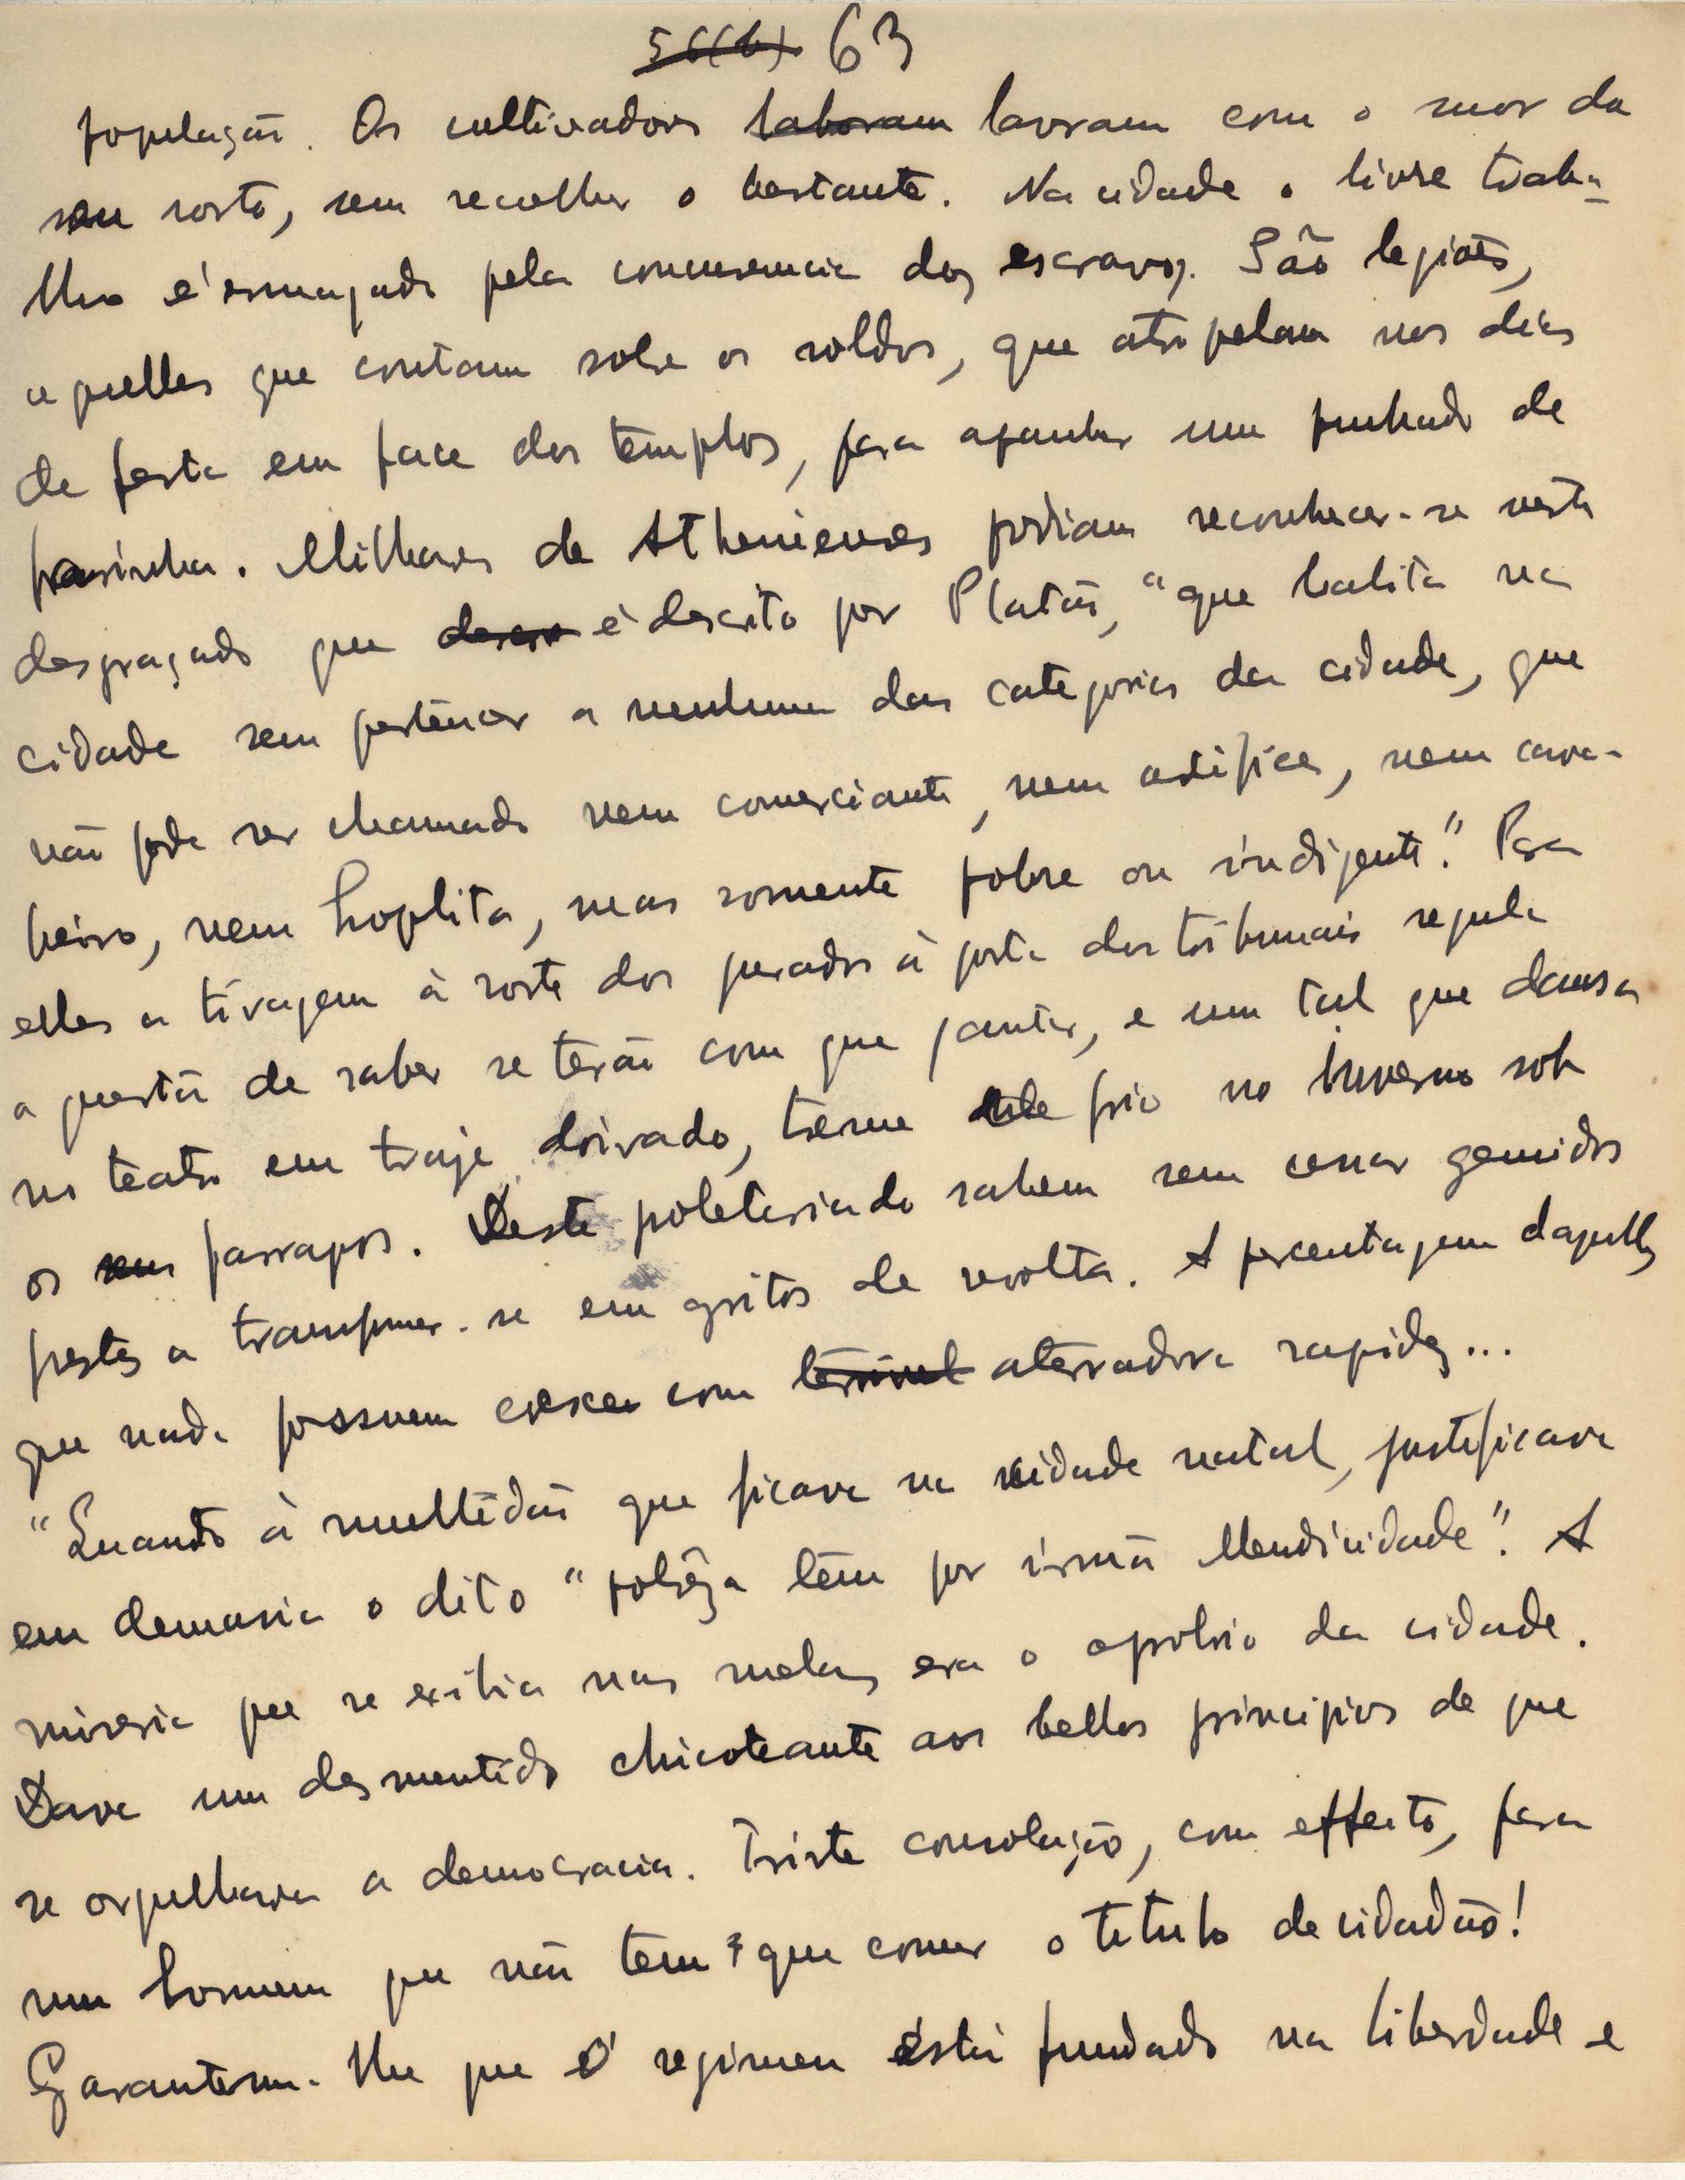 56(b) 63
população. Os cultivadores laboram lavram com o suor da
seu rosto, sem recolher o bastante. Na cidade o livre traba-
lho é esmagado pela concurrencia dos escravos. São legiões,
aquelles que contam sobre os soldos, que atropelam nos dias
de festa em face dos templos, para apanhar um punhado de
farinha. Milhares de Athenienses podiam reconhecer-se neste
desgraçado que é descrito por Platão, "que habita na
cidade sem pertencer a nenhuma das categorias da cidade, que
não pode ser chamado nem comerciante, nem artifice, nem cava-
heiro, nem hoplita, mas somente pobre ou indigente." Para
elles a tiragem à sorte dos jurados à porta dos tribunais regula
a questão de saber se terão com que jantar, e um tal que dansa
no teatro em traje doirado, treme de frio no inverno sob
os seus farrapos. Deste poletariado sahem sem cessar gemidos
prestes a transformar-se em gritos de revolta. A percentagem daquelles
que nada possuem cresce com terrivel aterradora rapidez...
"Quanto à multidão que ficava na cidade natal, justificava
em demasia o dito "pobrêza têm por irmã Mendicidade". A
miseria que se exibia nas ruelas era o oprobrio da cidade.
Dava um desmentido chicoteante aos bellos principios de que
se orgulhava a democracia. Triste consolação, com effeito, para
um homem que não tem que comer o titulo de cidadão!
Garantem-lhe que o regimen está fundado na liberdade e